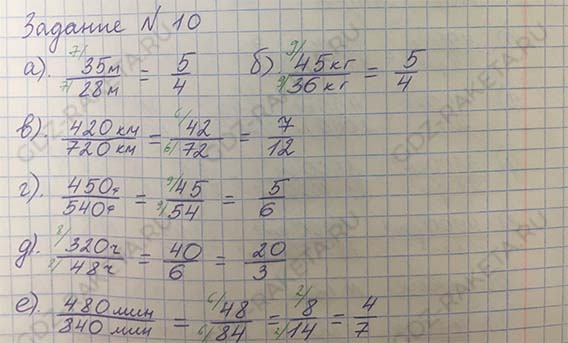 Задание № 10
а). 7/ 35м / 7/ 28м = 5/4 б) 9/ 45кг / 9/ 36кг = 5/4
в). 420км / 720км = 6/ 42 / 6/ 72 = 7/12
г). 450г / 540г = 9/ 45 / 9/ 54 = 5/6
д). 8/ 320ч / 8/ 48ч = 40/6 = 20/3
е). 480мин / 840мин = 6/ 48 / 6/ 84 = 2/ 8 / 2/ 14 = 4/7
GDZ-RAKETA.RU